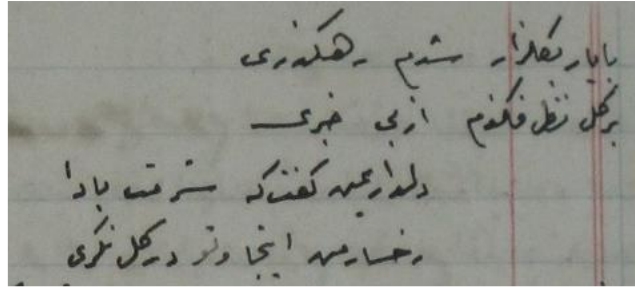 با یار بگلزار شدم رهگذری
بر گل نظر فکندم از بی خبری
دلدار بمن گفت که شرمت بادا
رخسار من اینجا و تو در گل نگری